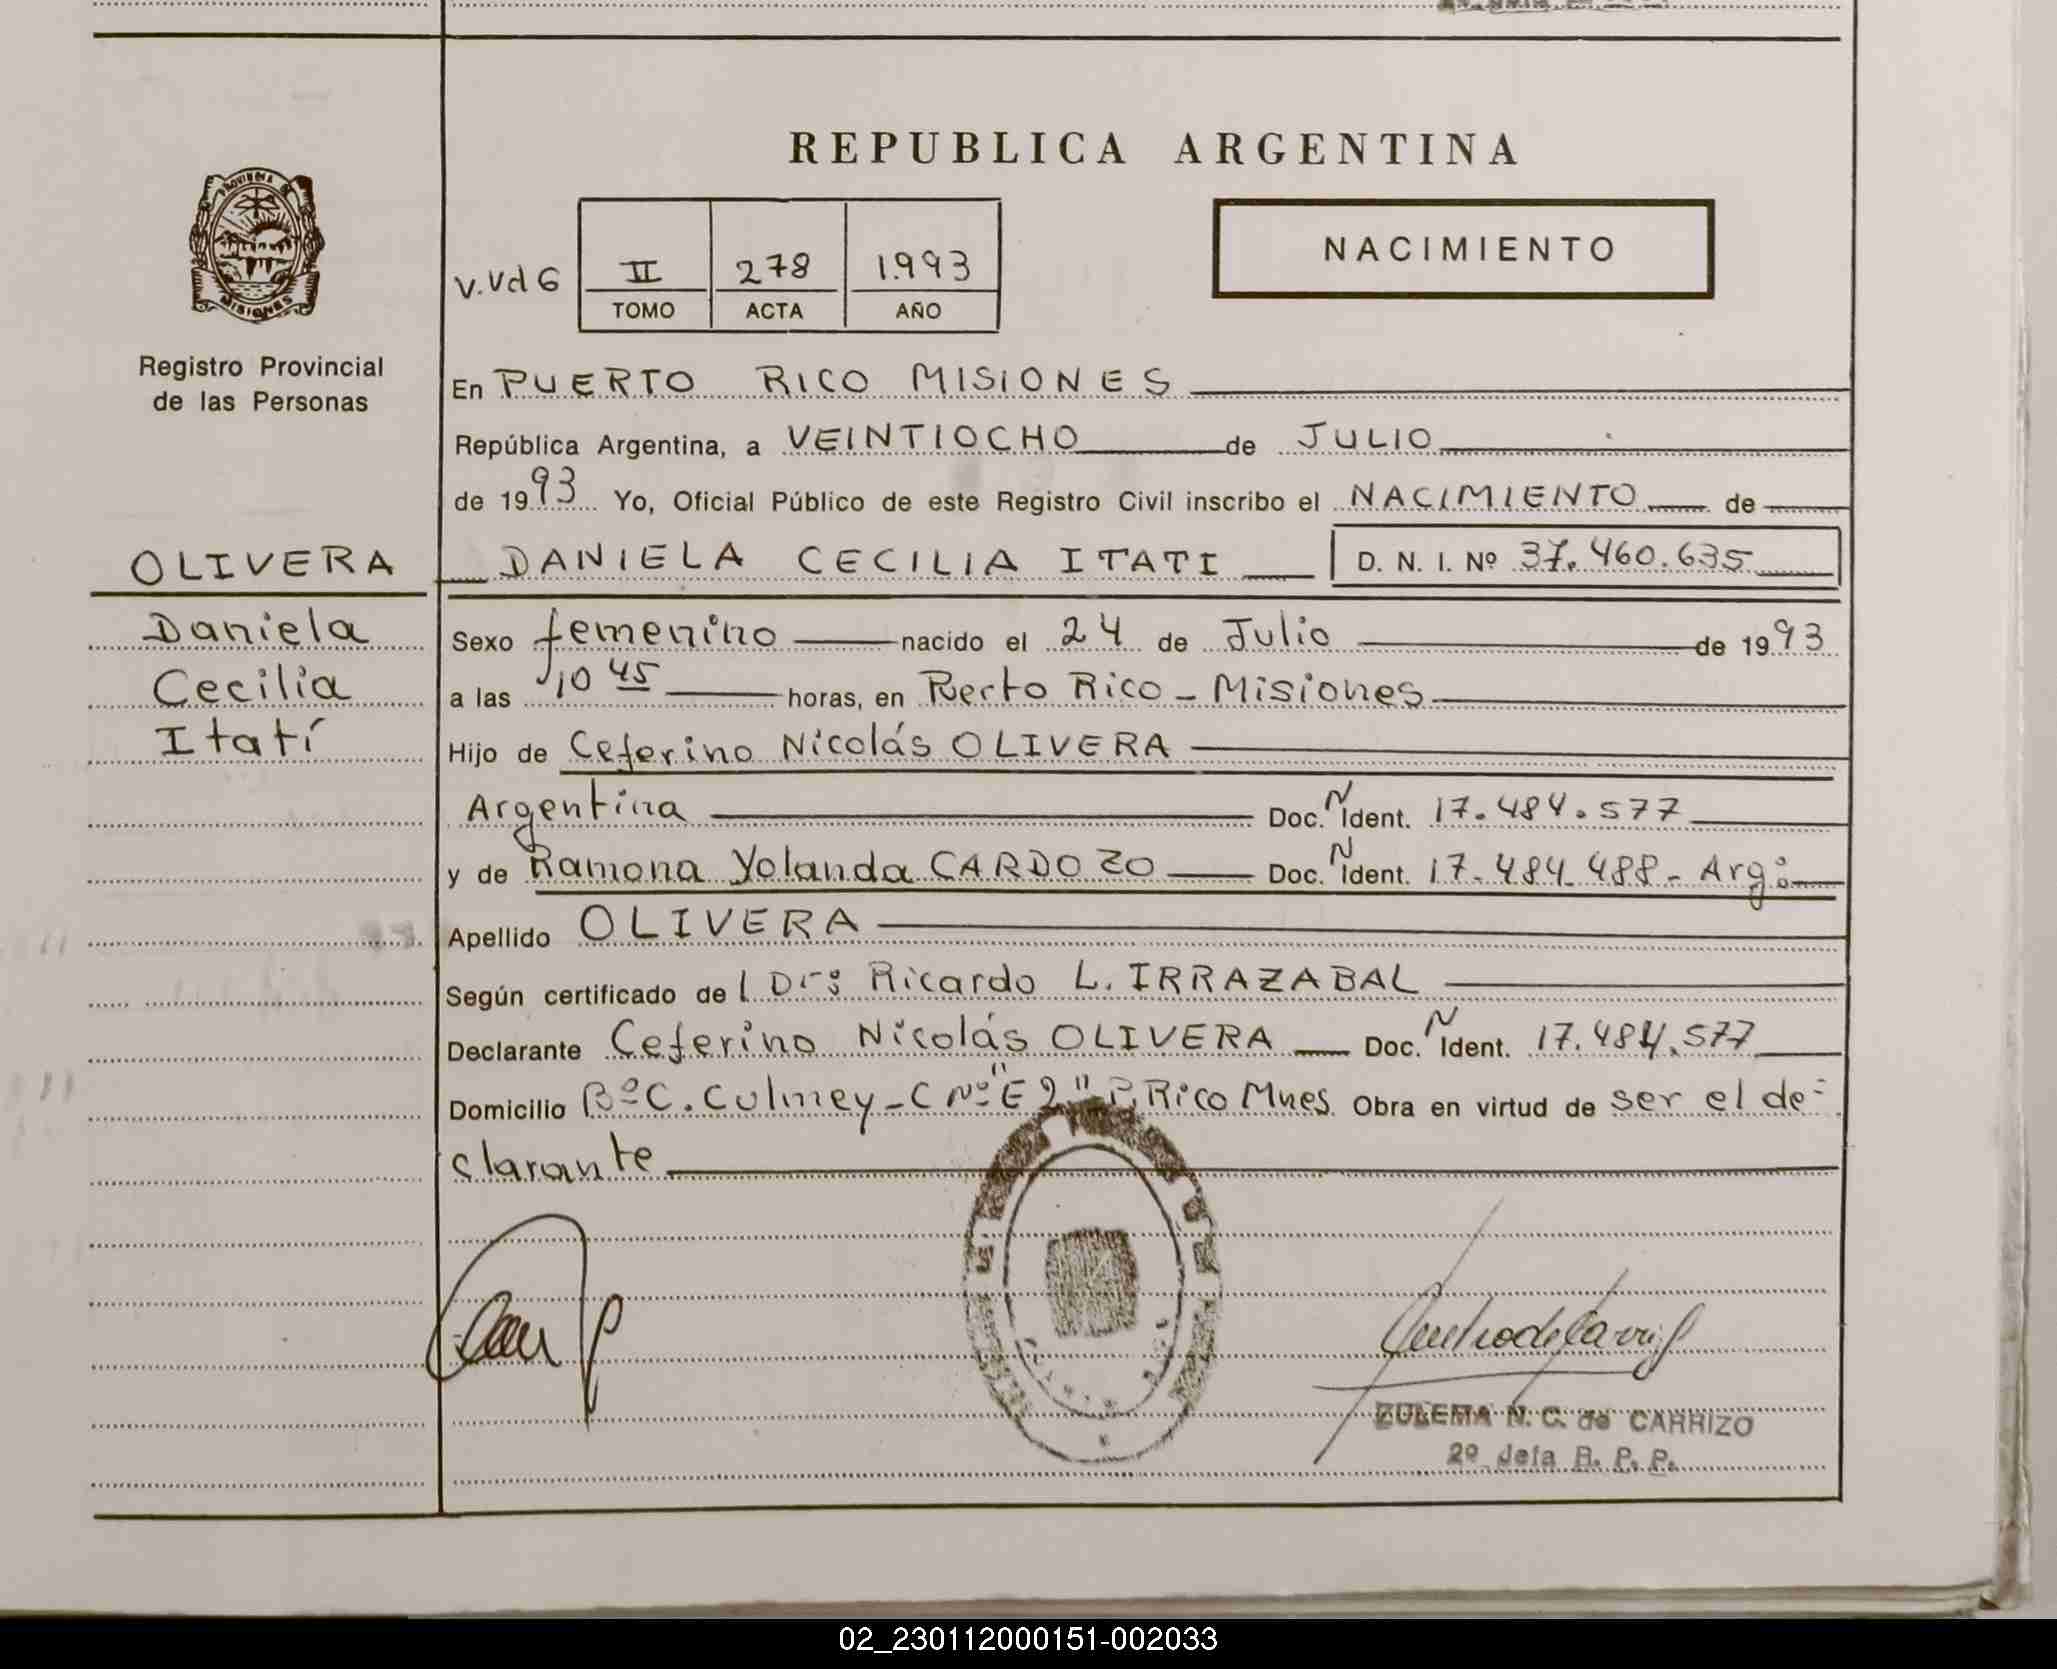 REPUBLICA ARGENTINA
PROVINCIA DE
MISIONES
Registro Provincial
de las Personas
V.Vd6
II
TOMO
278
ACTA
1.993
AÑO
NACIMIENTO
En PUERTO RICO MISIONES
República Argentina, a VEINTIOCHO de JULIO
de 1993 Yo, Oficial Público de este Registro Civil inscribo el NACIMIENTO de
OLIVERA
Daniela
Cecilia
Itatí
DANIELA CECILIA ITATI D. N. I. Nº 37.460.635
Sexo femenino nacido el 24 de Julio de 1993
a las 10 45 horas, en Puerto Rico - Misiones
Hijo de Ceferino Nicolás OLIVERA
Argentina Doc. N Ident. 17.484.577
y de Ramona Yolanda CARDOZO Doc. N Ident. 17.484.488 - Arg:
Apellido OLIVERA
Según certificado del Dr: Ricardo L. IRRAZABAL
Declarante Ceferino Nicolás OLIVERA Doc. N Ident. 17.484.577
Domicilio Bº C. Culmey - C Nº "E 2" P. Rico Mnes. Obra en virtud de ser el de-
clarante
ZULEMA N. C. de CARRIZO
2º Jefa R. P. P.
02_230112000151-002033